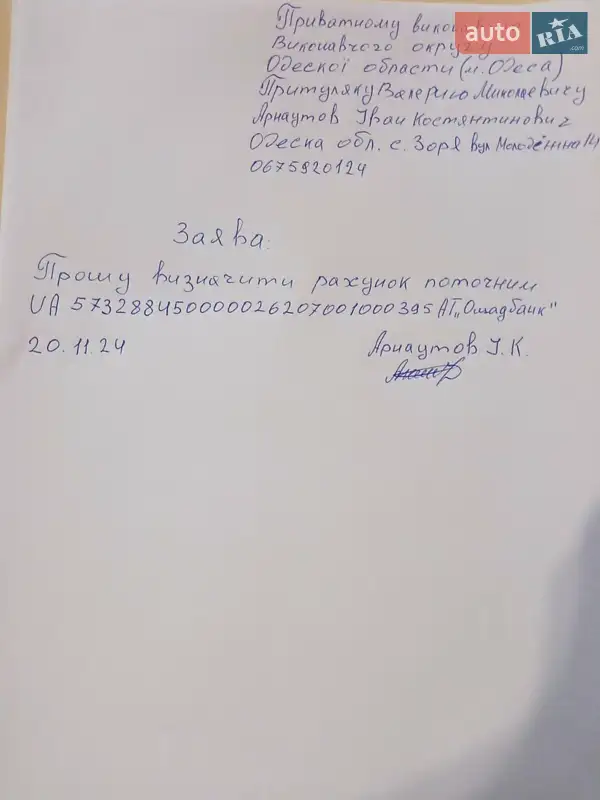 Приватному виконавцю
Виконавчого округу
Одеської області (м. Одеса)
Притуляку Валерію Миколаєвичу
Арнаутов Іван Костянтинович
Одеска обл. с. Зоря вул Молодёжна 14
0675920124
Заява:
Прошу визначити рахунок поточним
UA 573288450000026207001000395 АТ „Ощадбанк"
20.11.24
Арнаутов І.К.
auto RIA .com